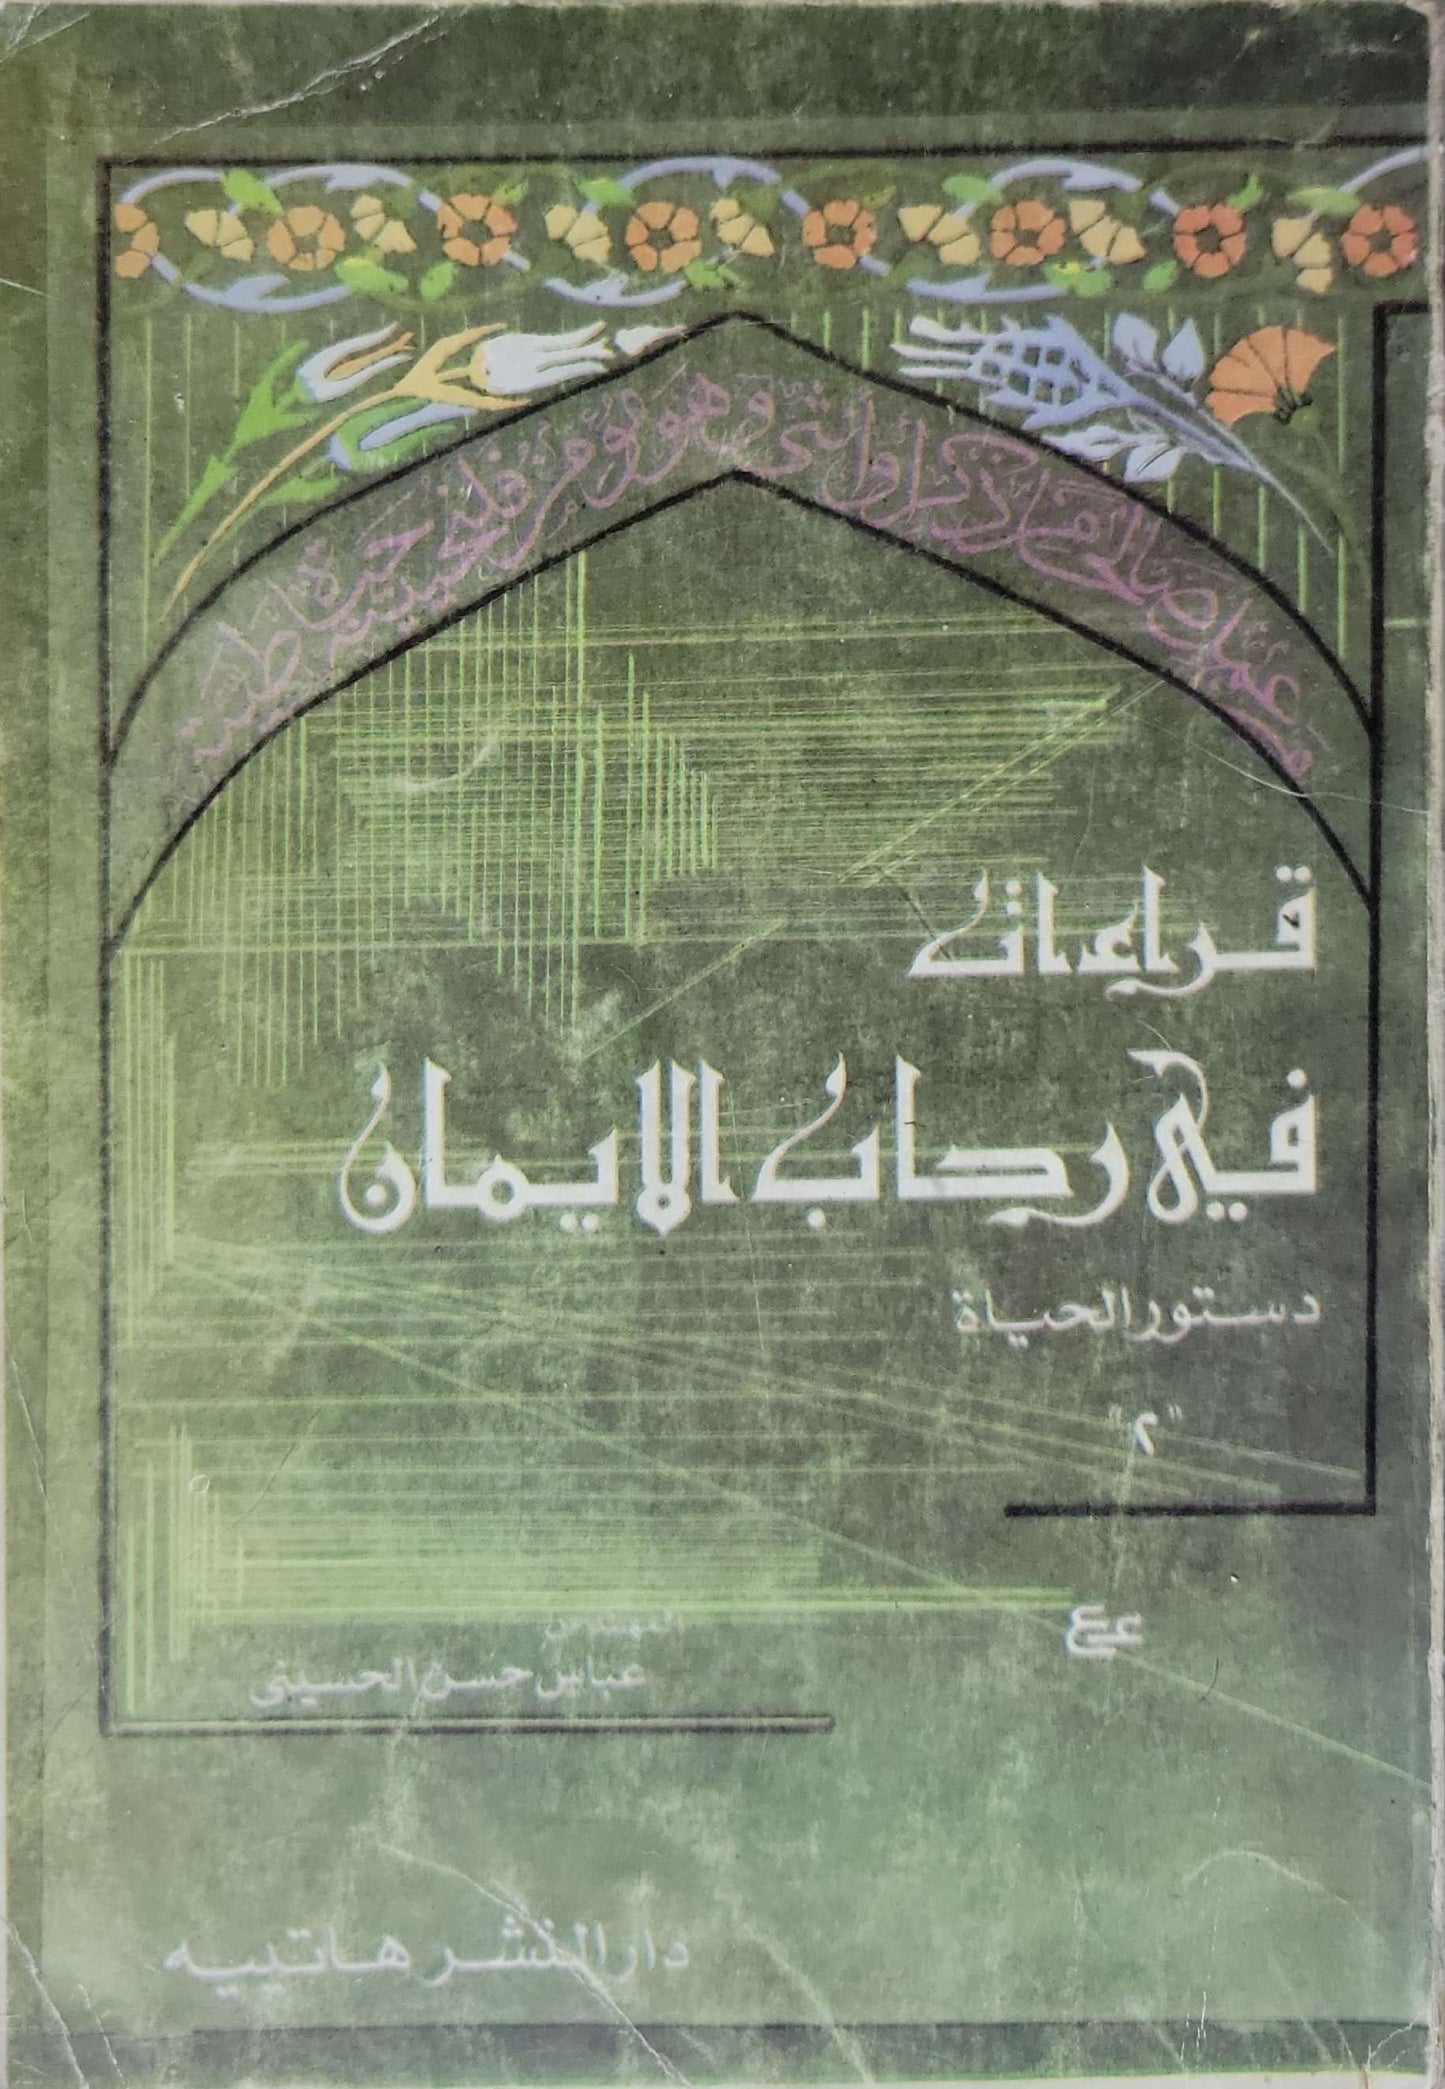 من عمل صالحا من ذكر او انثى وهو مؤمن فلنحيينه حياة طيبة
قراءات
في رحاب الايمان
دستور الحياة
"٢"
المهندس
عباس حسن الحسيني
دار النشر هاتييه